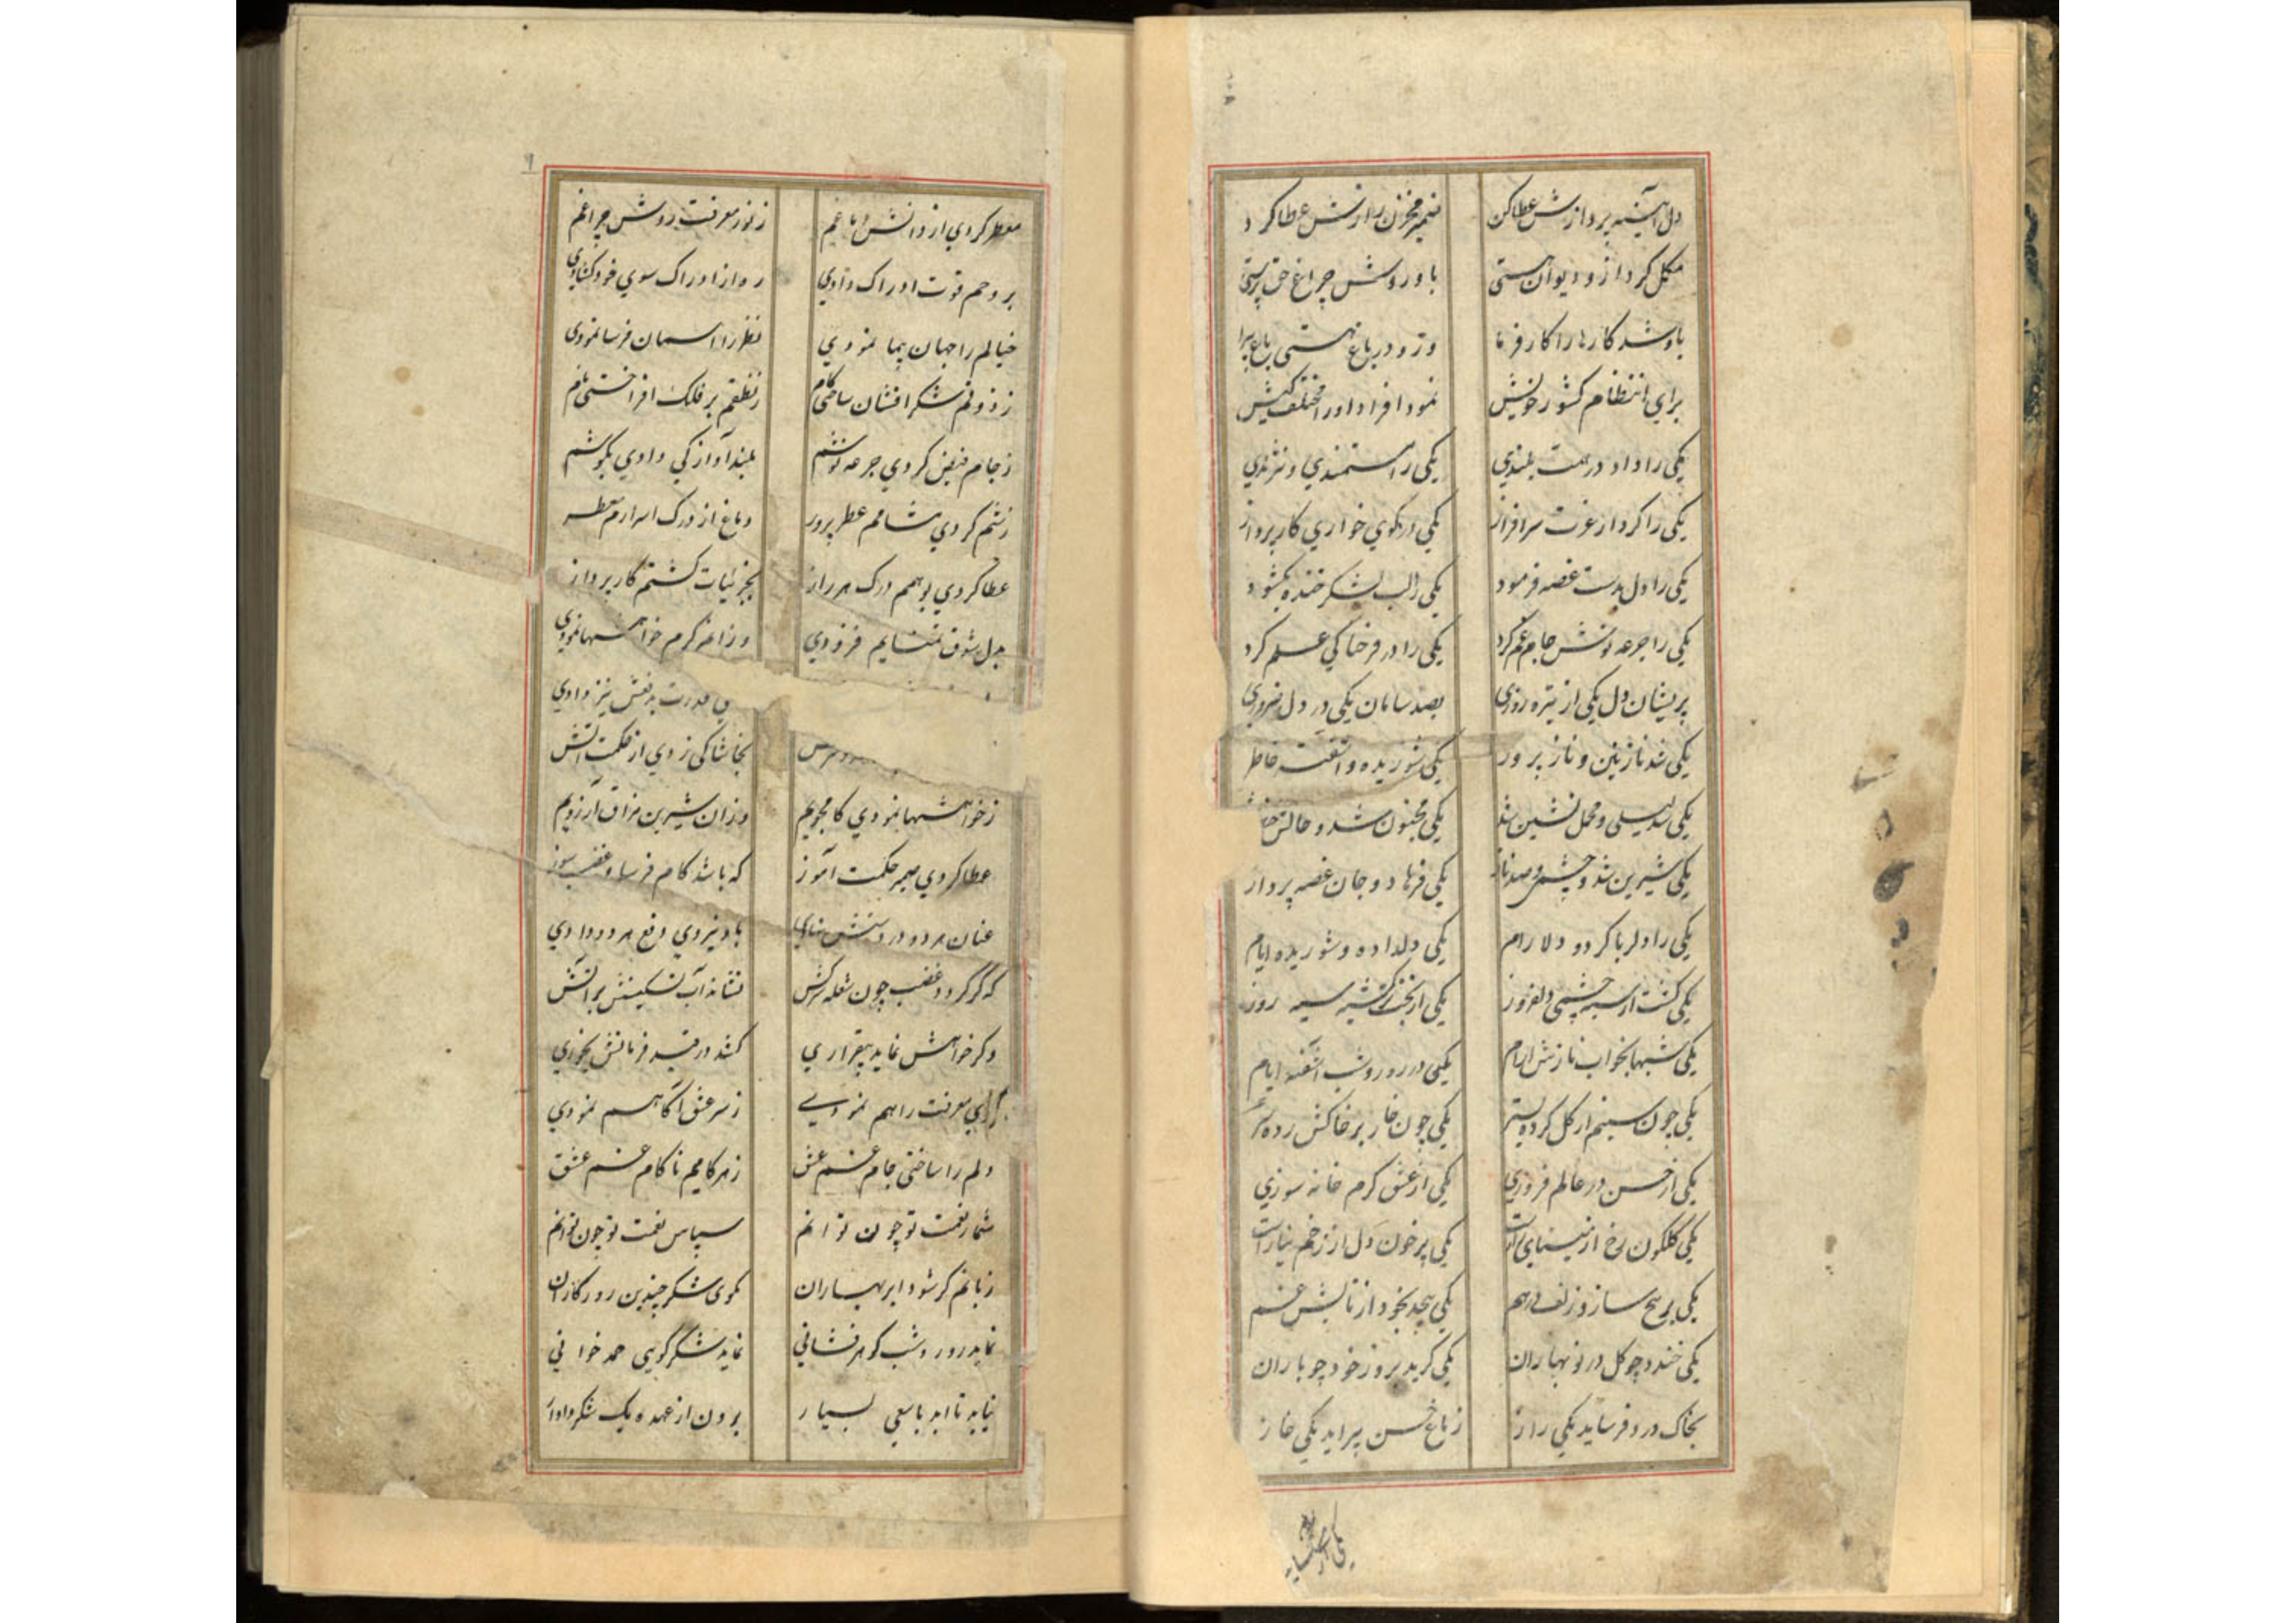 دل آئینه پردازش عطا کن ضمیر مخزن رازش عطا کرد
مکمل کرد ازو دیوان هستی باو روشن چراغ حق پرستی
باو شد کارها را کار فرما وزو در باغ هستی باغ پیرا
برای انتظام کشور خویش نمود افراد او را مختلف کیش
یکی را داد در همت بلندی یکی را مستمندی و نژندی
یکی را کرد از عزت سرافراز یکی در کوی خواری کار پرداز
یکی را دل بدست غصه فرمود یکی را لب بشکر خنده بکشود
یکی را جرعه نوش جام غم کرد یکی را در فرحناکی علم کرد
پریشان دل یکی از تیره روزی بصد سامان یکی در دل فروزی
یکی شد نازنین و ناز پرور یکی شوریده و آشفته خاطر
یکی لیلی و محمل نشین شد یکی مجنون شد و حالش
یکی شیرین شد و چشم و صد ناز یکی فرهاد و جان غصه پرداز
یکی را دلربا کرد و دلارام یکی دلداده و شوریده ایام
یکی گشت از سیه چشمی دلفروز یکی از بخت گشته سیه روز
یکی شبها بخواب نازش آرام یکی در روز و شب آشفته ایام
یکی چون سیمتم از گل کرده بستر یکی چون خار بر خاکش زده سر
یکی از حسن در عالم فروزی یکی از عشق گرم خانه سوزی
یکی گلگون رخ از یکی پر خون دل از زخم
یکی بر رخ سازد زلف درهم یکی پیچد بخود از تابش غم
یکی خندد چو گل در نوبهاران یکی گرید بروز خود چو باران
بخاک درد فرساید یکی راز ز باغ حسن پیراید یکی خار
یکی از
۹
معطر کردی از دانش دماغم ز نور معرفت روشن چراغم
بروحم قوت ادراک دادی ره از ادراک سوی خود کشادی
خیالم را جهان پیما نمودی نظر را آسمان فرسا نمودی
ز ذوقم شکر افشان ساختی کام ز نطقم بر فلک افراختی نام
ز جام فیض کردی جرعه نوشم بلند آوازگی دادی بگوشم
ز شم کردی مشامم عطر پرور دماغ از درک اسرارم معطر
عطا کردی بوهمم درک هر راز بجزئیات گشتم کار پرداز
بدل شوق تمنایم فزودی وزان گرم خواهشها نمودی
قدرت بدفعش نیز دادی
بخاشاکی زدی از حکمت آتش
ز خواهشها نمودی کامجویم وزان شیرین مذاق آرزویم
عطا کردی بمن حکمت آموز که باشد کام فرسا و غضب سوز
عنان هر دو در دستش نهادی باو نیروی دفع هر دو دادی
که گر گردد غضب چون شعله سرکش نشاند آب تسکینش بر آتش
و گر خواهش نماید بیقراری کشد در قید فرمانش بخواری
براه معرفت راهم نمودی ز سر عشق آگاهم نمودی
دلم را ساختی جام غم عشق ز هر کامیم ناکام غم عشق
شمار نعمت تو چون توانم سپاس نعمت تو چون توانم
زبانم گر شود ابر بهاران گوی شکر چندین روزگاران
نماید روز و شب گوهر فشانی نماید شکر گویی حمد خوانی
نیاید تا ابد با سعی بسیار برون از عهده یک شکر دادار